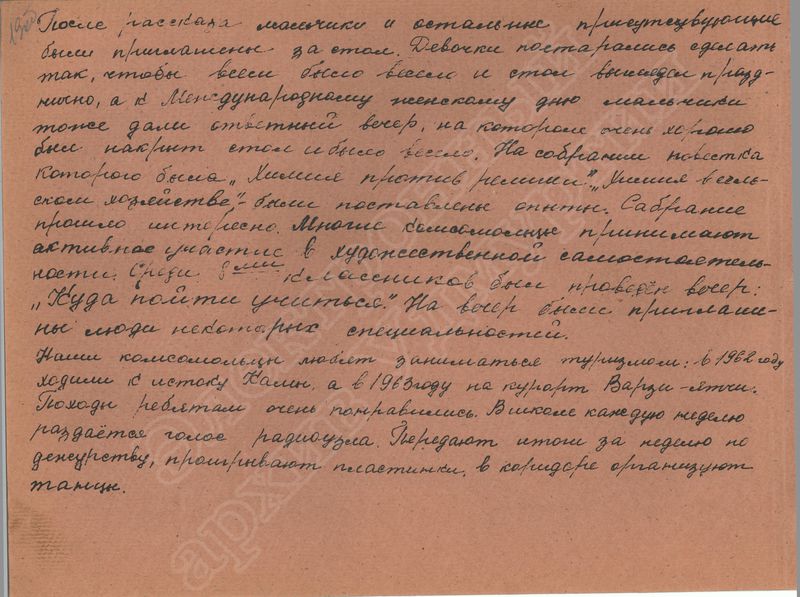 После рассказа мальчики и остальные присутсвующие
были приглашены за стол. Девочки постарались сделать
так, чтобы всем было весело и стол выглядел празд-
нично, а к Международному женскому дню мальчики
тоже дали ответный вечер, на котором очень хорошо
был накрыт стол и было весело. На собрании повестка
которого была „Химия против религии", „Химия в сель-
ском хозяйстве"- были поставлены опыты. Сабрание
прошло интересно. Многие комсомольцы принимают
активное участие в художественной самостоятель-
ности. Среди 8ми классников был проведён вечер:
„Куда пойти учиться". На вечер были приглаше-
ны люди некоторых специальностей.
Наши комсомольцы любят заниматься туризмом: в 1962 году
ходили к истоку Камы, а в 1963 году на курорт Варзи-ятчи.
Походы ребятам очень понравились. В школе каждую неделю
раздаётся голос радиоузла. Передают итоги за неделю по
дежурству, проигрывают пластинки, в коридоре организуют
танцы.